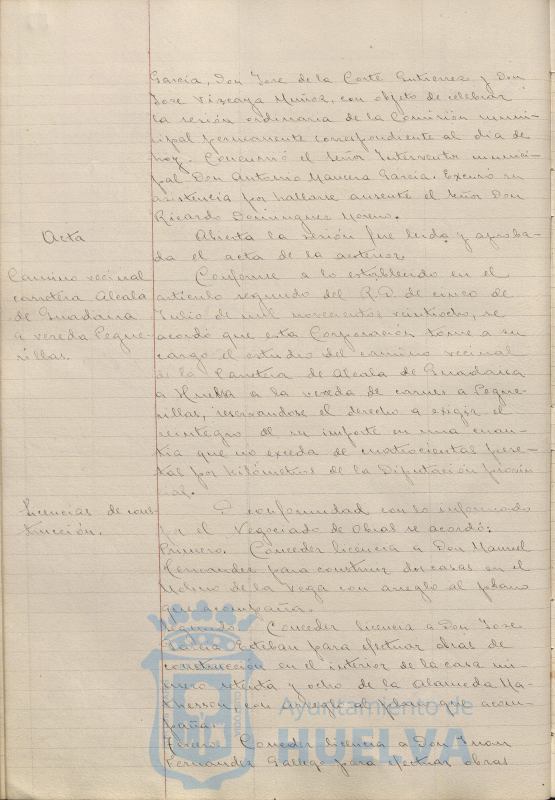 Garcia, Don Jose de la Corte Gutierrez y Don
Jose Vizcaya Muñoz, con objeto de celebrar
la sesión ordinaria de la Comisión muni-
cipal permanente correspondiente al dia de
hoy. Concurrió el señor Interventor munici-
pal Don Antonio Garcia. Excusó su
asistencia por hallarse ausente el señor Don
Ricardo Dominguez Moreno.
Acta
Abierta la sesión fue leida y aproba-
da el acta de la anterior.
Camino vecinal
carretera Alcalá
de Guadaira
a vereda Pegue-
rillas.
Conforme a lo establecido en el
articulo segundo del R.D. de cinco de
Julio de mil novecientos veintiocho, se
acordó que esta Corporación tome a su
cargo el estudio del camino vecinal
de la Carretera de Alcala de Guadaira
a Huelva a la vereda de carnes a Pegue-
rillas, reservandose el derecho a exigir el
reintegro de su importe en una cuan-
tia que no exceda de cuatrocientas pese-
tas por kilómetros de la Diputación provin
cial.
Licencias de cons-
trucción.
De conformidad con lo informado
por el Negociado de Obras se acordó:
Primero. Conceder licencia a Don Manuel
Hernandez para construir dos casas en el
Molino de la Vega con arreglo al plano
que acompaña.
Segundo. Conceder licencia a Don Jose
Garcia Esteban para efectuar obras de
construcción en el interior de la casa nú-
mero setenta y ocho de la Alameda Ma-
kherson, con arreglo al plano que acom-
paña.
Tercero. Conceder licencia a Don Juan
Fernandez Gallego para efectuar obras
Ayuntamiento de
HUELVA